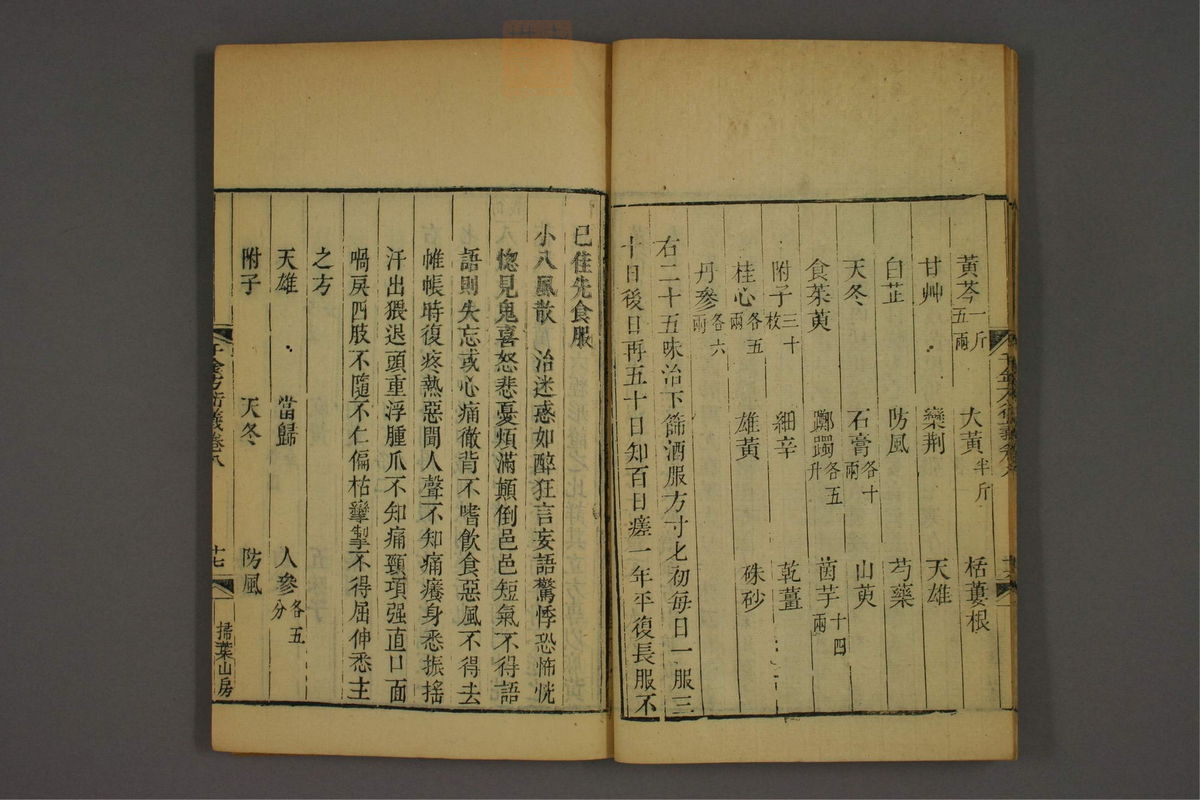 黃芩一斤五兩 大黃半斤 栝蔞根
甘艸 欒荆 天雄
白芷 防風 芍藥
天冬 石膏各十兩 山茰
食茱萸 躑躅各五升 茵芋十四兩
附子三十枚 細辛 乾薑
桂心各五兩 雄黃 硃砂
丹參各六兩
右二十五味治下篩酒服方寸匕初每日一服三
十日後日再五十日知百日瘥一年平復長服不
已佳先食服
小八風散 治迷惑如醉狂言妄語驚悸恐怖恍
惚見鬼喜怒悲憂煩滿顛倒邑邑短氣不得語
語則失忘或心痛徹背不嗜飲食惡風不得去
帷帳時復疼熱惡聞人聲不知痛癢身悉振搖
汗出猥退頭重浮腫爪不知痛頸項强直口面
喎戾四肢不隨不仁偏枯攣掣不得屈伸悉主
之方
天雄 當歸 人參各五分
附子 天冬 防風
千金方衍義卷八 十七 掃葉山房